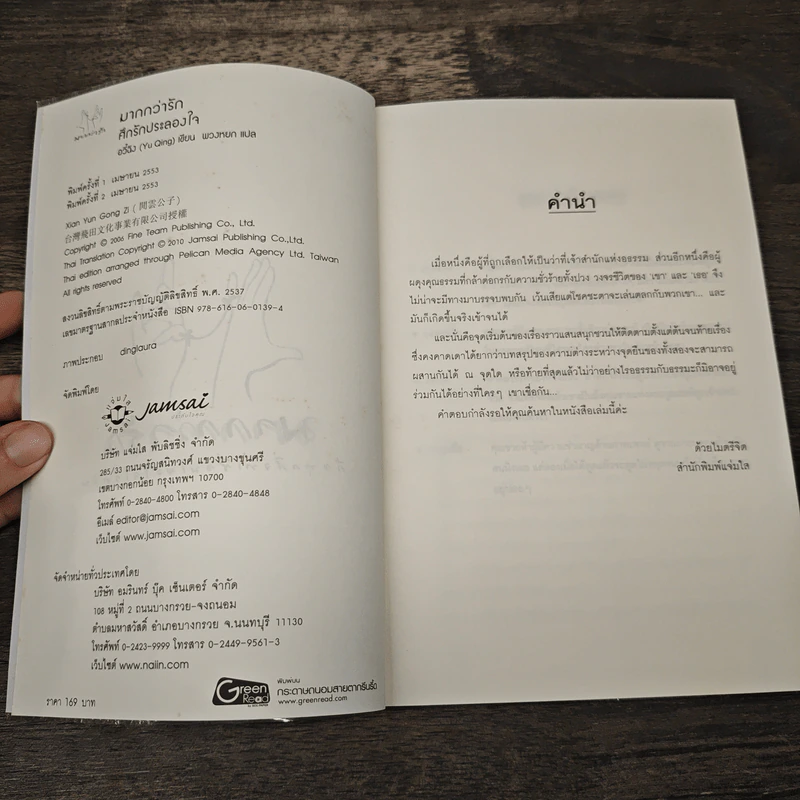 มากกว่ารัก
มากกว่ารัก
ศึกรักประลองใจ
อวี๋ฉิง (Yu Qing) เขียน พวงหยก แปล
พิมพ์ครั้งที่ 1 เมษายน 2553
พิมพ์ครั้งที่ 2 เมษายน 2553
Xian Yun Gong Zi (閒雲公子)
台灣飛田文化事業有限公司授權
Copyright © 2006 Fine Team Publishing Co., Ltd.
Thai Translation Copyright © 2010 Jamsai Publishing Co.,Ltd.
Thai edition arranged through Pelican Media Agency Ltd. Taiwan
All rights reserved
สงวนลิขสิทธิ์ตามพระราชบัญญัติลิขสิทธิ์ พ.ศ. 2537
เลขมาตรฐานสากลประจำหนังสือ ISBN 978-616-06-0139-4
ภาพประกอบ dinglaura
จัดพิมพ์โดย
แจ่มใส
jamsai
Jamsai
บริษัท แจ่มใส พับลิชชิ่ง จำกัด
285/33 ถนนจรัญสนิทวงศ์ แขวงบางขุนศรี
เขตบางกอกน้อย กรุงเทพฯ 10700
โทรศัพท์ 0-2840-4800 โทรสาร 0-2840-4848
อีเมล์ editor@jamsai.com
เว็บไซต์ www.jamsai.com
จัดจำหน่ายทั่วประเทศโดย
บริษัท อมรินทร์ บุ๊ค เซ็นเตอร์ จำกัด
108 หมู่ที่ 2 ถนนบางกรวย-จงถนอม
ตำบลมหาสวัสดิ์ อำเภอบางกรวย จ.นนทบุรี 11130
โทรศัพท์ 0-2423-9999 โทรสาร 0-2449-9561-3
เว็บไซต์ www.naiin.com
Green Read
พิมพ์บน
กระดาษถนอมสายตากรีนรี้ด
www.greenread.com
ราคา 169 บาท
คำนำ
เมื่อหนึ่งคือผู้ที่ถูกเลือกให้เป็นว่าที่เจ้าสำนักแห่งอธรรม ส่วนอีกหนึ่งคือผู้
ผดุงคุณธรรมที่กล้าต่อกรกับความชั่วร้ายทั้งปวง วงจรชีวิตของ 'เขา' และ 'เธอ' จึง
ไม่น่าจะมีทางมาบรรจบพบกัน เว้นเสียแต่โชคชะตาจะเล่นตลกกับพวกเขา... และ
มันก็เกิดขึ้นจริงเข้าจนได้
และนั่นคือจุดเริ่มต้นของเรื่องราวแสนสนุกชวนให้ติดตามตั้งแต่ต้นจนท้ายเรื่อง
ซึ่งคงคาดเดาได้ยากว่าบทสรุปของความต่างระหว่างจุดยืนของทั้งสองจะสามารถ
ผสานกันได้ ณ จุดใด หรือท้ายที่สุดแล้วไม่ว่าอย่างไรอธรรมกับธรรมะก็มิอาจอยู่
ร่วมกันได้อย่างที่ใครๆ เขาเชื่อกัน...
คำตอบกำลังรอให้คุณค้นหาในหนังสือเล่มนี้ค่ะ
ด้วยไมตรีจิต
สำนักพิมพ์แจ่มใส